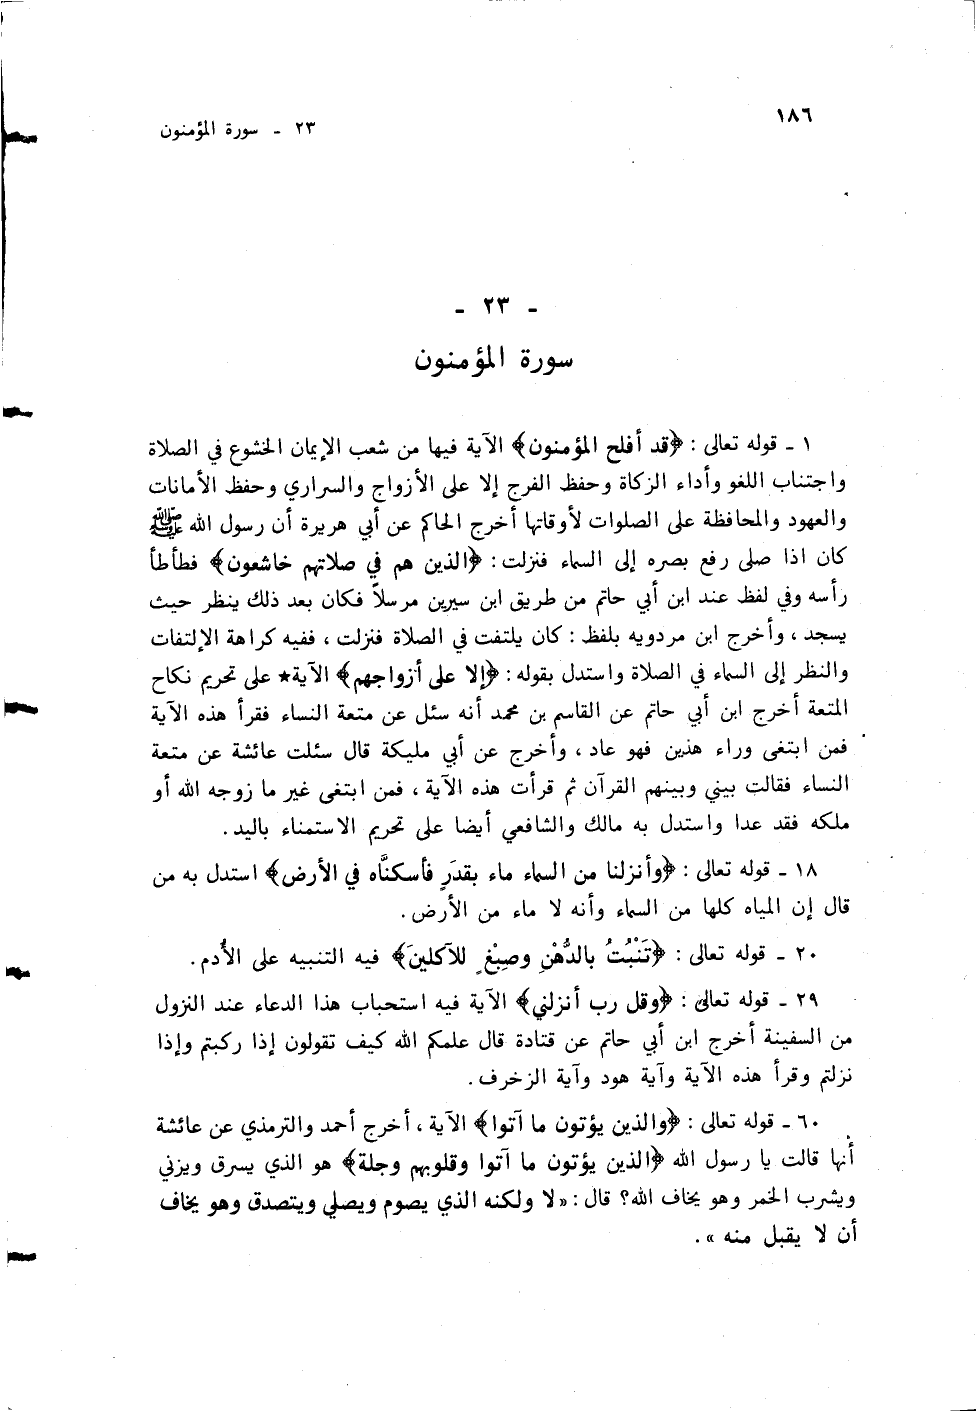 ١٨٦
٢٣ - سورة المؤمنون
- ٢٣ -
سورة المؤمنون
١ - قوله تعالى : ﴿قد أفلح المؤمنون﴾ الآية فيها من شعب الإيمان الخشوع في الصلاة
واجتناب اللغو وأداء الزكاة وحفظ الفرج إلا على الأزواج والسراري وحفظ الأمانات
والعهود والمحافظة على الصلوات لأوقاتها أخرج الحاكم عن أبي هريرة أن رسول الله ﷺ
كان اذا صلى رفع بصره إلى السماء فنزلت : ﴿الذين هم في صلاتهم خاشعون﴾ فطأطأ
رأسه وفي لفظ عند ابن أبي حاتم من طريق ابن سيرين مرسلاً فكان بعد ذلك ينظر حيث
يسجد ، وأخرج ابن مردويه بلفظ : كان يلتفت في الصلاة فنزلت ، ففيه كراهة الإلتفات
والنظر إلى السماء في الصلاة واستدل بقوله : ﴿إلا على أزواجهم﴾ الآية★ على تحريم نكاح
المتعة أخرج ابن أبي حاتم عن القاسم بن محمد أنه سئل عن متعة النساء فقرأ هذه الآية
فمن ابتغى وراء هذين فهو عاد ، وأخرج عن أبي مليكة قال سئلت عائشة عن متعة
النساء فقالت بيني وبينهم القرآن ثم قرأت هذه الآية ، فمن ابتغى غير ما زوجه الله أو
ملكه فقد عدا واستدل به مالك والشافعي أيضا على تحريم الاستمناء باليد .
١٨ - قوله تعالى : ﴿وأنزلنا من السماء ماء بقدَرٍ فأسكنَّاه في الأرض﴾ استدل به من
قال إن المياه كلها من السماء وأنه لا ماء من الأرض .
٢٠ - قوله تعالى : ﴿تَنْبُتُ بالدُّهْنِ وصِبْغٍ للآكلينَ﴾ فيه التنبيه على الأُدم .
٢٩ - قوله تعالى : ﴿وقل رب أنزلني﴾ الآية فيه استحباب هذا الدعاء عند النزول
من السفينة أخرج ابن أبي حاتم عن قتادة قال علمكم الله كيف تقولون إذا ركبتم وإذا
نزلتم وقرأ هذه الآية وآية هود وآية الزخرف .
٦٠ - قوله تعالى : ﴿والذين يؤتون ما آتوا﴾ الآية ، أخرج أحمد والترمذي عن عائشة
أنها قالت يا رسول الله ﴿الذين يؤتون ما آتوا وقلوبهم وجلة﴾ هو الذي يسرق ويزني
ويشرب الخمر وهو يخاف الله؟ قال : « لا ولكنه الذي يصوم ويصلي ويتصدق وهو يخاف
أن لا يقبل منه » .